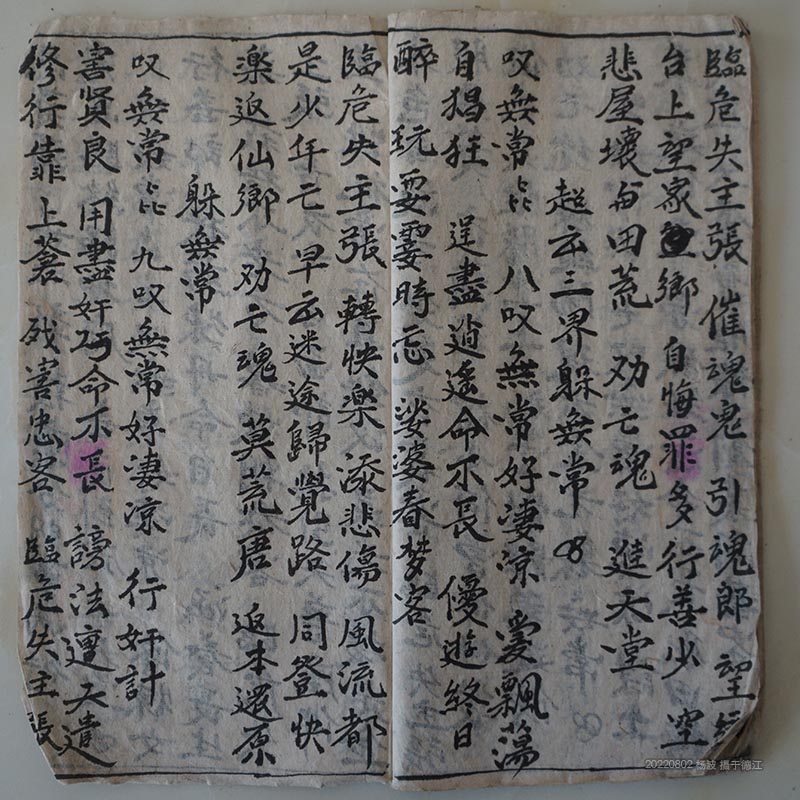 臨危失主張 催魂鬼 引魂郎 望
台上望家鄉 自悔罪多行善少 空
悲屋壞与田荒 劝亡魂 進天堂
超云三界躲無常
叹無常 八叹無常好凄凉 愛飄蕩
自猖狂 逞盡逍遥命不長 優遊終日
醉 玩耍霎時忘 娑婆春梦客
臨危失主張 轉快楽 添悲傷 風流都
是少年亡 早云迷途歸覺路 同登快
楽返仙鄉 劝亡魂 莫荒唐 返本還原
躲無常
叹無常 九叹無常好凄凉 行奸計
害賢良 用盡奸巧命不長 謗法遭天遣
修行靠上蒼 残害忠客 臨危失主張
20220802 杨波 摄于德江